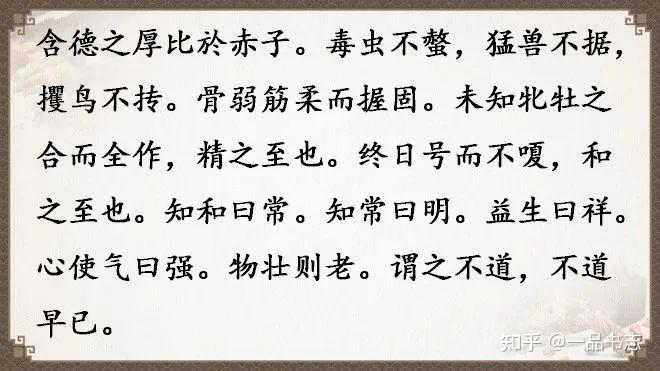 含德之厚比於赤子。毒虫不螫，猛兽不据，
攫鸟不抟。骨弱筋柔而握固。未知牝牡之
合而全作，精之至也。终日号而不嗄，和
之至也。知和曰常。知常曰明。益生曰祥。
心使气曰强。物壮则老。谓之不道，不道
早已。
知乎 @一品书志